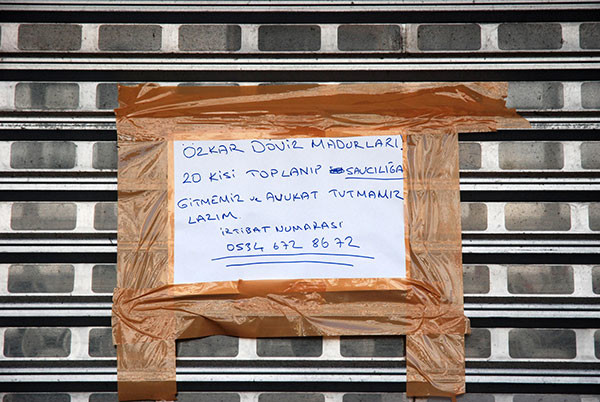 ÖZKAR DÖVİZ MADURLARI!
20 KİSİ TOPLANIP SAVCILIĞA
GİTMEMİZ ve AVUKAT TUTMAMIZ
LAZIM.
İRTİBAT NUMARASI
0534 672 86 72